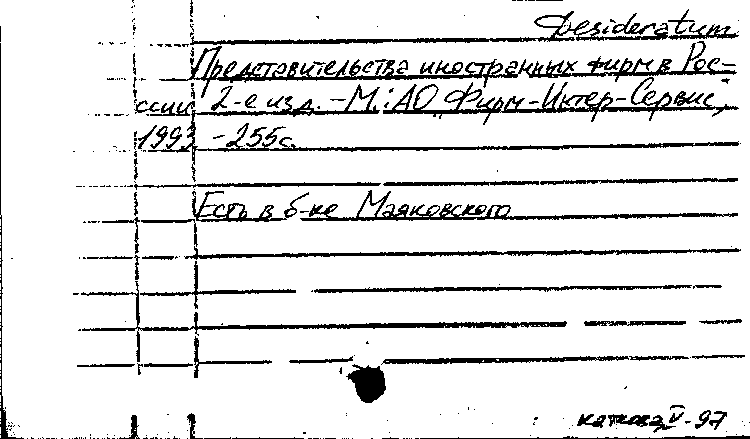 Desideratum
Представительства иностранных фирм в Рос-
сии 2-е изд. - М.: АО „Фирм-Интер-Сервис",
1993 - 255с.
Есть в б-ке Маяковского
каткова, V - 97